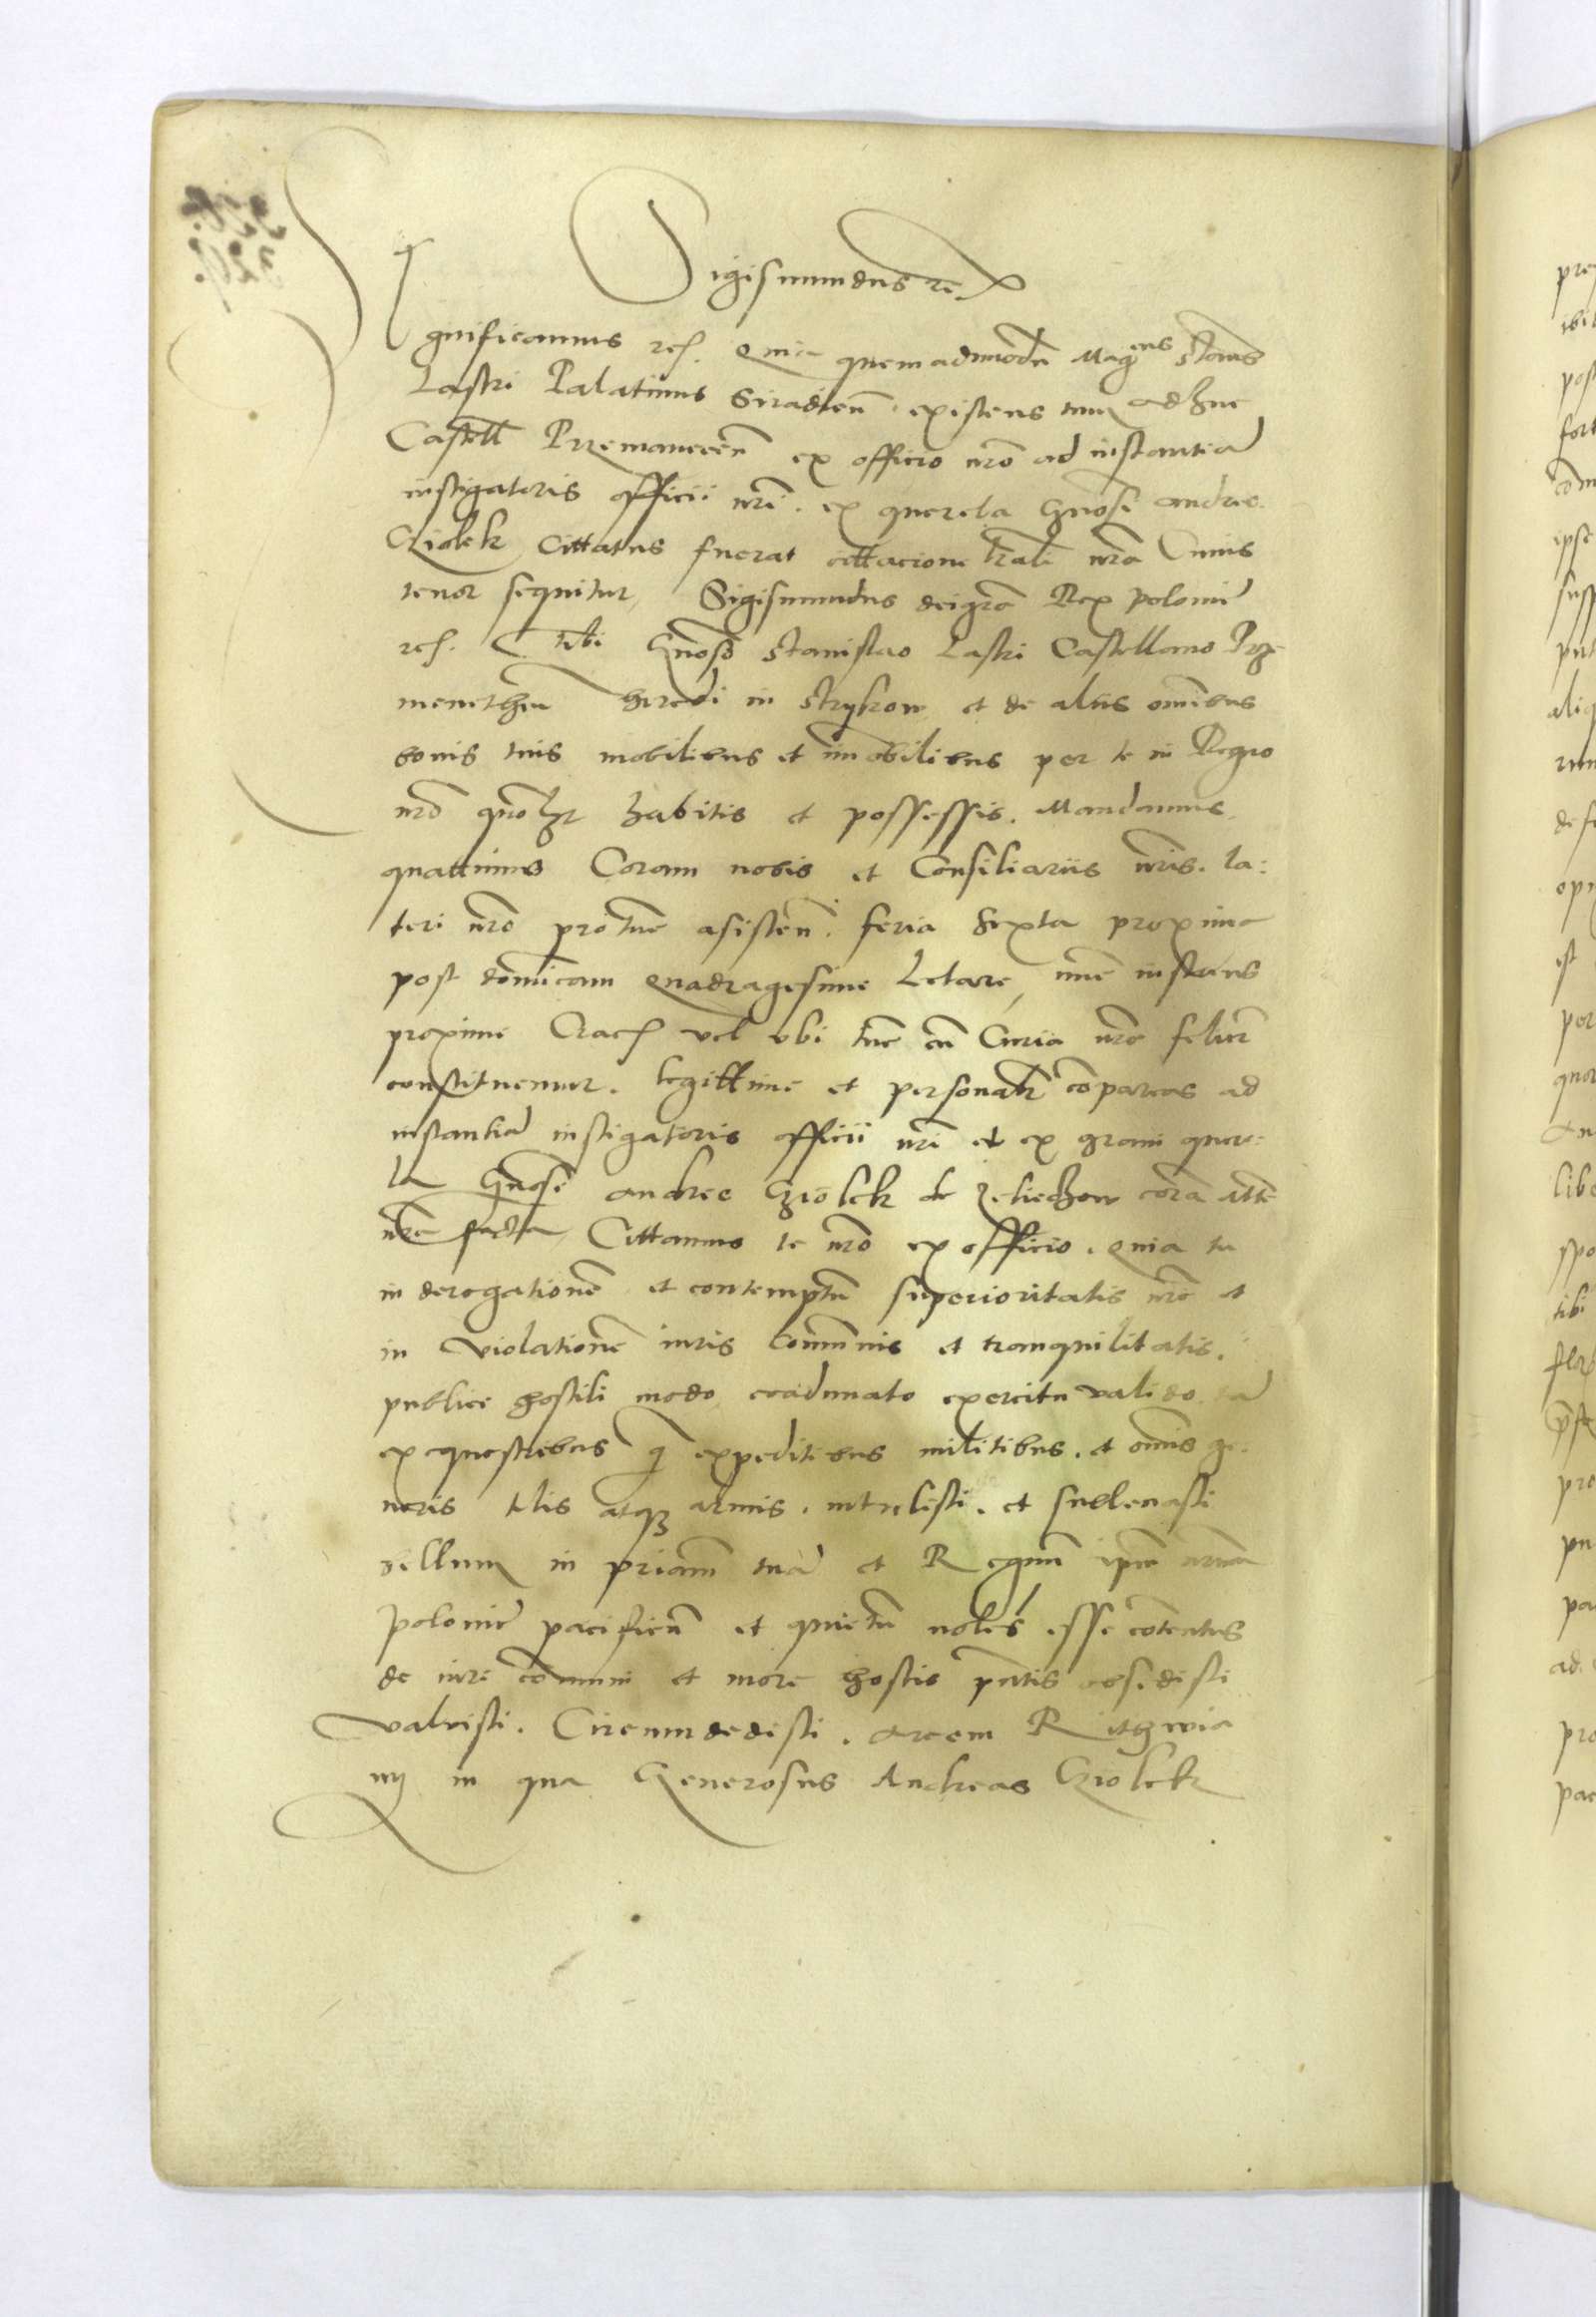 Sigismundus rc.
Significamus rc. Quia quemadmodu Magcus Stanis
Laski Palatinus Siradien existens tunc adhuc
Castell Przemanceen ex officio nro ad instantia
instigatoris officii nri. ex querela Gnosi Andree
Cziolek Cittatus fuerat cittacione lrali nra Cuius
tenor sequitur, Sigismundus dei gra Rex Polonie
rc. Tibi Gnoso Stanislao Laski Castellano Prze
menethen heredi in Strykow et de aliis omibus
bonis tuis mobilibus et imobilibus per te in Regno
nro quoltz habitis et possessis. Mandamus
quattinus Coram nobis et Consiliariis nris. la:
teri nro pro tunc asisten. feria Sexta proxima
post dominicam Quadragesime Letare, nunc instans
proxime Crac vel ubi tunc cu Curia nra felicr
constituemur. legittime et personalr compareas ad
instantia instigatoris officii nri et ex gravi quere:
la Gnosi Andree Cziolek de Zeliechow cora
nra facta, Cittamus te nro ex officio. Quia tu
in derogatione et contemptu superioritatis nre et
in violatione iuris communis et tranquilitatis.
publice hostili modo coadunato exercitu valido ta
ex equestribus q expeditibus militibus. et omis ge:
neris telis atqz armis. intulisti. et sullevasti
bellum in priam tua et Regnum ipm nrum
Polonie pacificu et quietu noles esse cotentus
de iure comuni et more hostis obsedisti
valuisti. Circumdedisti. arcem Ritzwia
ny in qua Generosus Andreas Cziolek